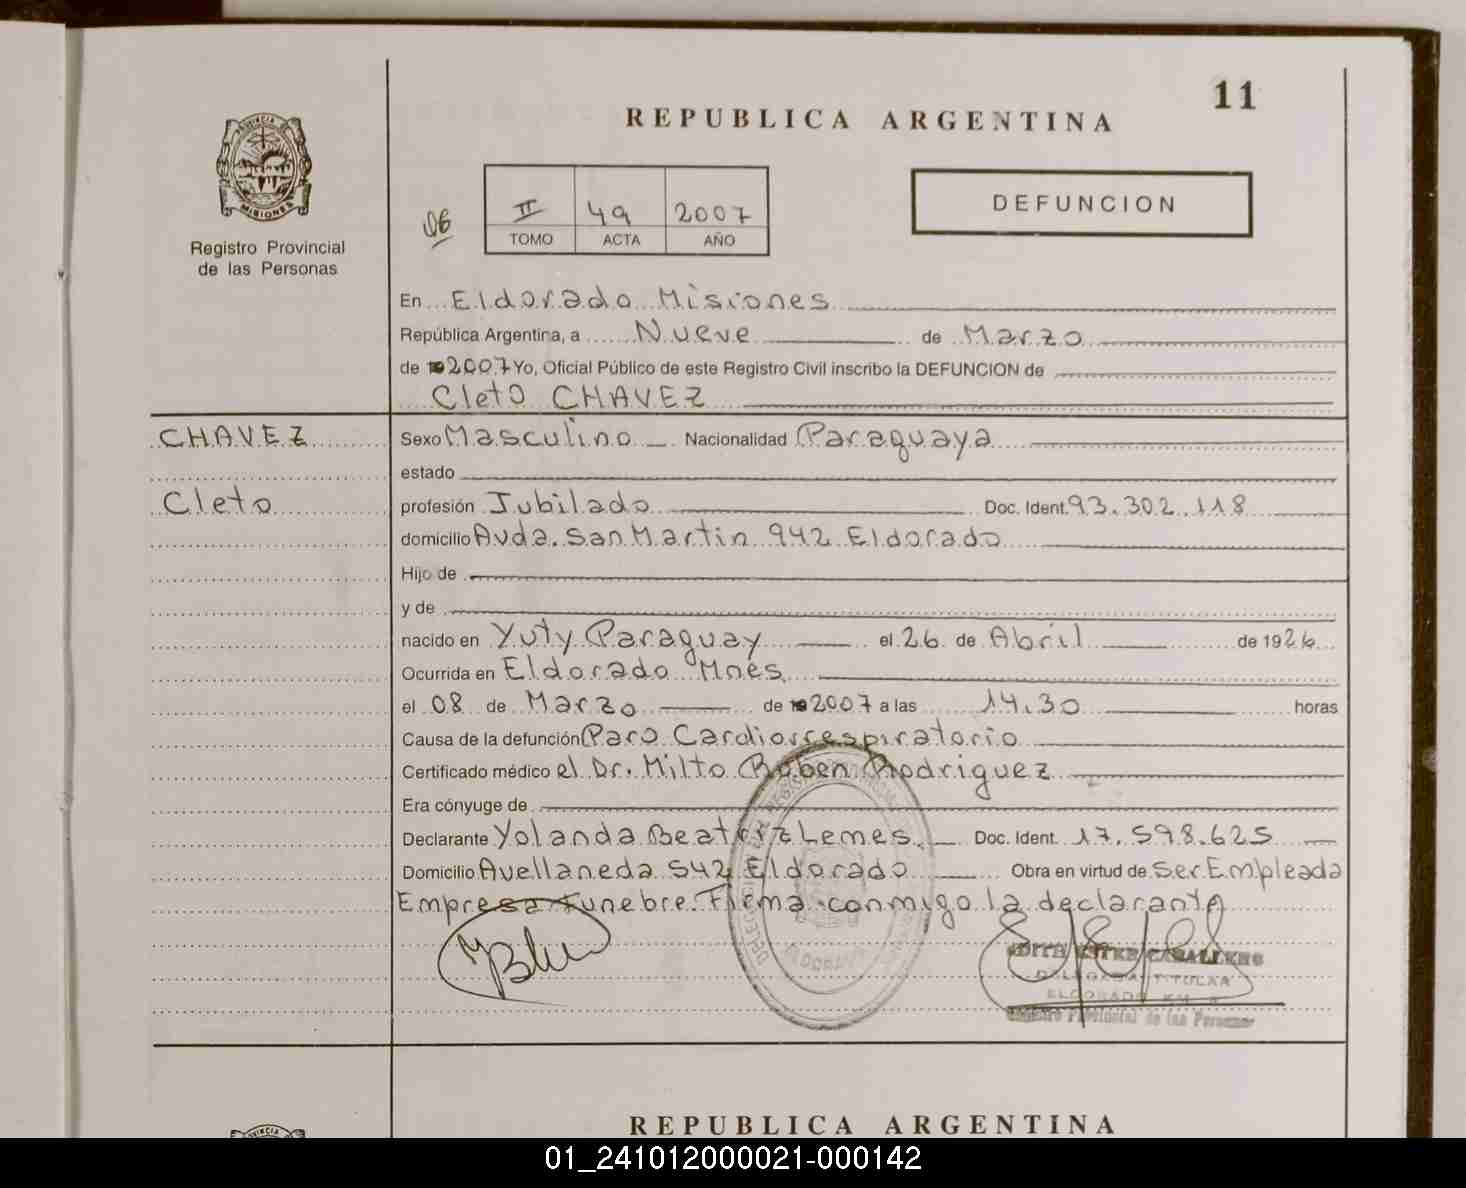 11
REPUBLICA ARGENTINA
PROVINCIA DE
MISIONES
Registro Provincial
de las Personas
06
II 49 2007
TOMO ACTA AÑO
DEFUNCION
En Eldorado Misiones
República Argentina, a Nueve de Marzo
de 2007 Yo, Oficial Público de este Registro Civil inscribo la DEFUNCION de
Cleto CHAVEZ
CHAVEZ
Cleto
Sexo Masculino Nacionalidad Paraguaya
estado
profesión Jubilado Doc. Ident. 93.302.118
domicilio Avda. San Martin 942 Eldorado
Hijo de
y de
nacido en Yuty Paraguay el 26 de Abril de 1926
Ocurrida en Eldorado Mnes
el 08 de Marzo de 2007 a las 14.30 horas
Causa de la defunción Paro Cardiorrespiratorio
Certificado médico el Dr. Milto Ruben Rodriguez
Era cónyuge de
Declarante Yolanda Beatriz Lemes Doc. Ident. 17.598.625
Domicilio Avellaneda 542 Eldorado Obra en virtud de Ser Empleada
Empresa Funebre. Firma conmigo la declarante
ESTER CABALLERO
DELEGADA TITULAR
ELDORADO KM
Registro Provincial de las Personas
REPUBLICA ARGENTINA
01_241012000021-000142